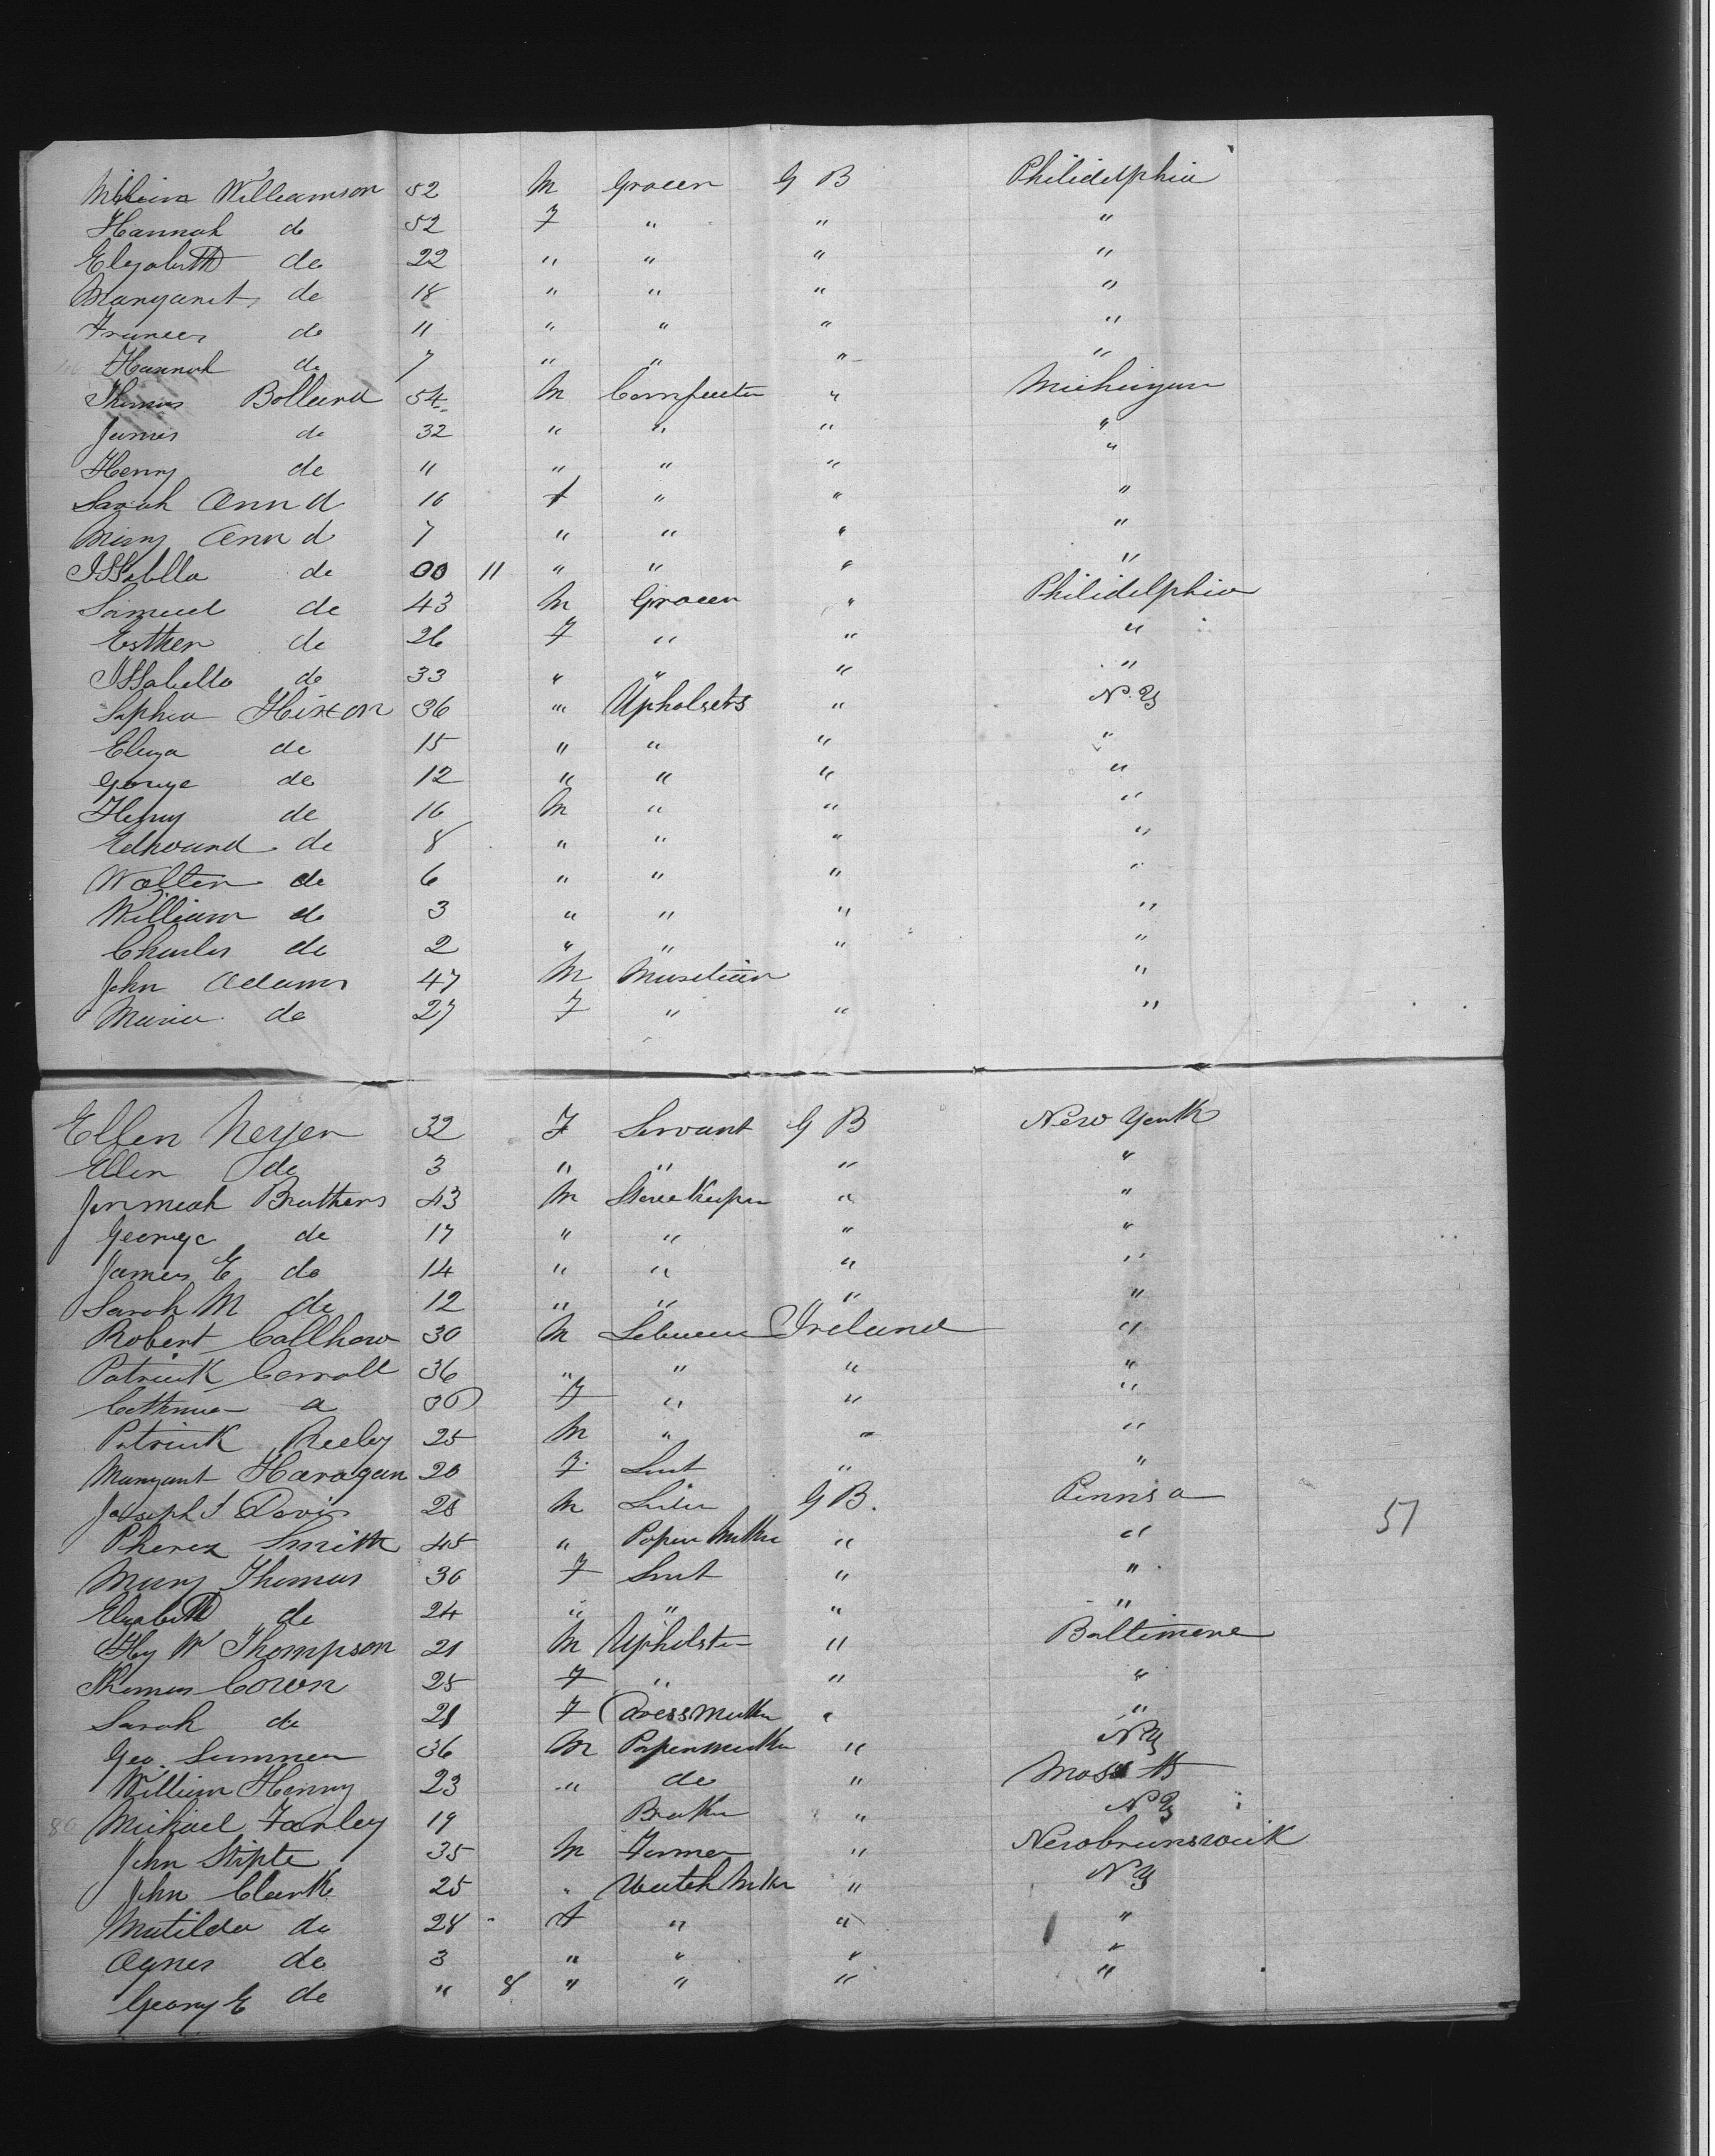 Williamson 52 M Grocer G B Philidelphia
Hannah do 52 F " " "
Elizabeth do 22 " " " "
Margaret do 18 " " " "
Frances do 11 " " " "
Hannah do 7 " " " "
Thomas Bolland 54 M Carpenter " Michigan
James do 32 " " " "
Henry do 11 " " " "
Sarah Ann d 16 f " " "
Mary Ann d 7 " " " "
ISSabella do 00 11 " " " "
Samuel do 43 M Grocer " Philidelphia
Esther do 26 F " " "
ISSabella do 33 " " " "
Sophia Hixon 36 " Upholsets " N.Y
Eliza do 15 " " " "
George do 12 " " " "
Henry do 16 M " " "
Edward do 8 " " " "
Walter do 6 " " " "
William do 3 " " " "
Charles do 2 " " " "
John Adams 47 M Musitian "
Maria do 27 F " " "
Ellen 32 F Servant G B New York
Ellen do 3 " " " "
Jermeah Bruthers 43 M Store Keeper " "
George do 17 " " " "
James E do 14 " " " "
Sarah M do 12 " " " "
Robert Callhow 30 M Ireland "
Patrick Carroll 36 " " " "
a 30 F " " "
Patrick Reeley 25 M " " "
Margaret Haragan 20 F Svnt " "
Joseph Davis 28 M G B. Pennsa
Smith 45 " Paper Maker " "
Mary Thomas 30 F Svnt " "
Elizabeth do 24 " " " "
Hy W Thompson 21 M Upholster " Baltimore
Thomas Cowen 25 F " " "
Sarah do 21 F Dressmaker " "
Geo. Sumner 36 M Papermaker " N Y
William Henry 23 " do " Mass tts
80 Michael Farley 19 " N Y
John Stipte 35 M Farmer " Newbrunswick
John Clark 25 " Watch Mkr " N Y
Matilda do 28 f " " "
Agnes do 3 " " " "
Georg E do " 8 " " " "
57